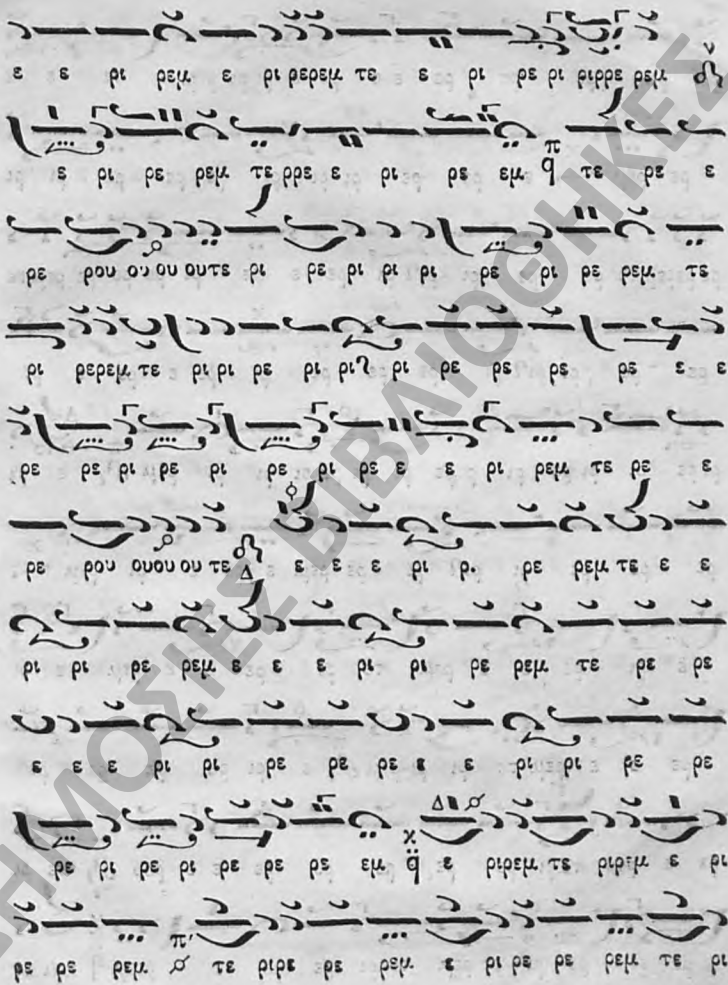 ε ε ρι ρεμ ε ρι ρερεμ τε ε ρι ρε ρι ριρρε ρεμ
ε ρι ρε ρεμ τερρε ε ρι ρι ρε εμ τε ρε ε
ρε ρου ου ου ουτε ρι ρε ρι ρι ρι ρε ρι ρε ρεμ τε
ρι ρερεμ τε ρι ρι ρε ρι ρι ρι ρε ρε ρε ρε ε ε
ρε ρι ρε ρι ρε ρι ρε ε ε ρι ρεμ τε ρε ε
ρε ρου ουου ου τε Δ ε ε ε ρι ρε ρεμ τε ε ε
ρι ρι ρε ρεμ ε ε ε ρι ρι ρε ρεμ τε ρε ρε
ε ε ε ρι ρι ρε ρε ε ε ρι ρι ρε ρε
ρε ρι ρε ρι ρε ρε ρε εμ ε ριριρεμ τε ριριρεμ ε ρι
ρε ρε ρεμ τε ριρε ρε ρεμ ε ρι ρε ρε ρεμ τε ρι
ΔΗΜΟΣΙΕΣ ΒΙΒΛΙΟΘΗΚΕΣ